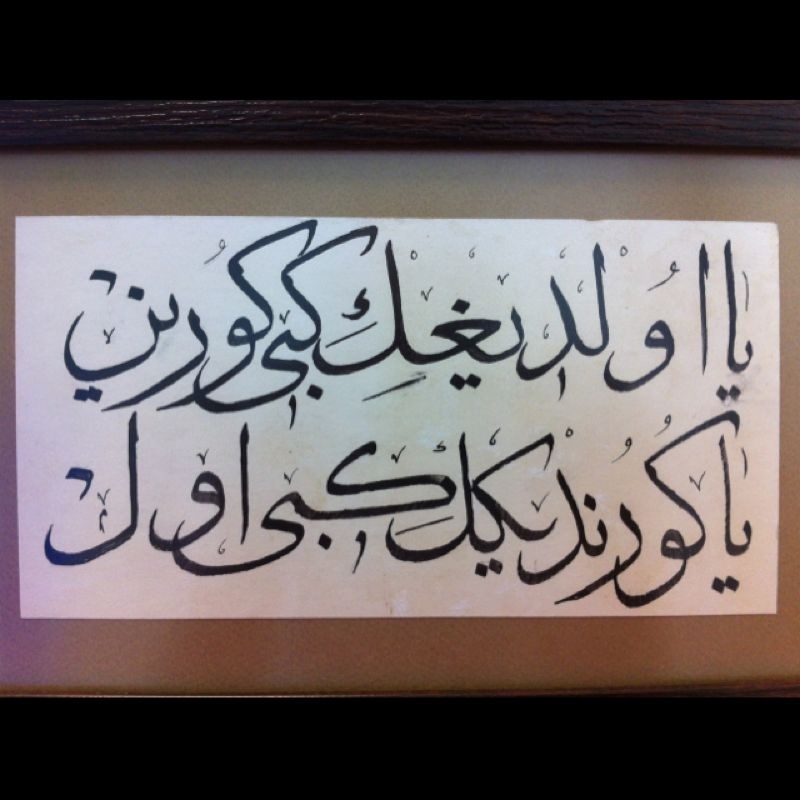 يا اولديغك كبى كورين
يا كورنديكك كبى اول